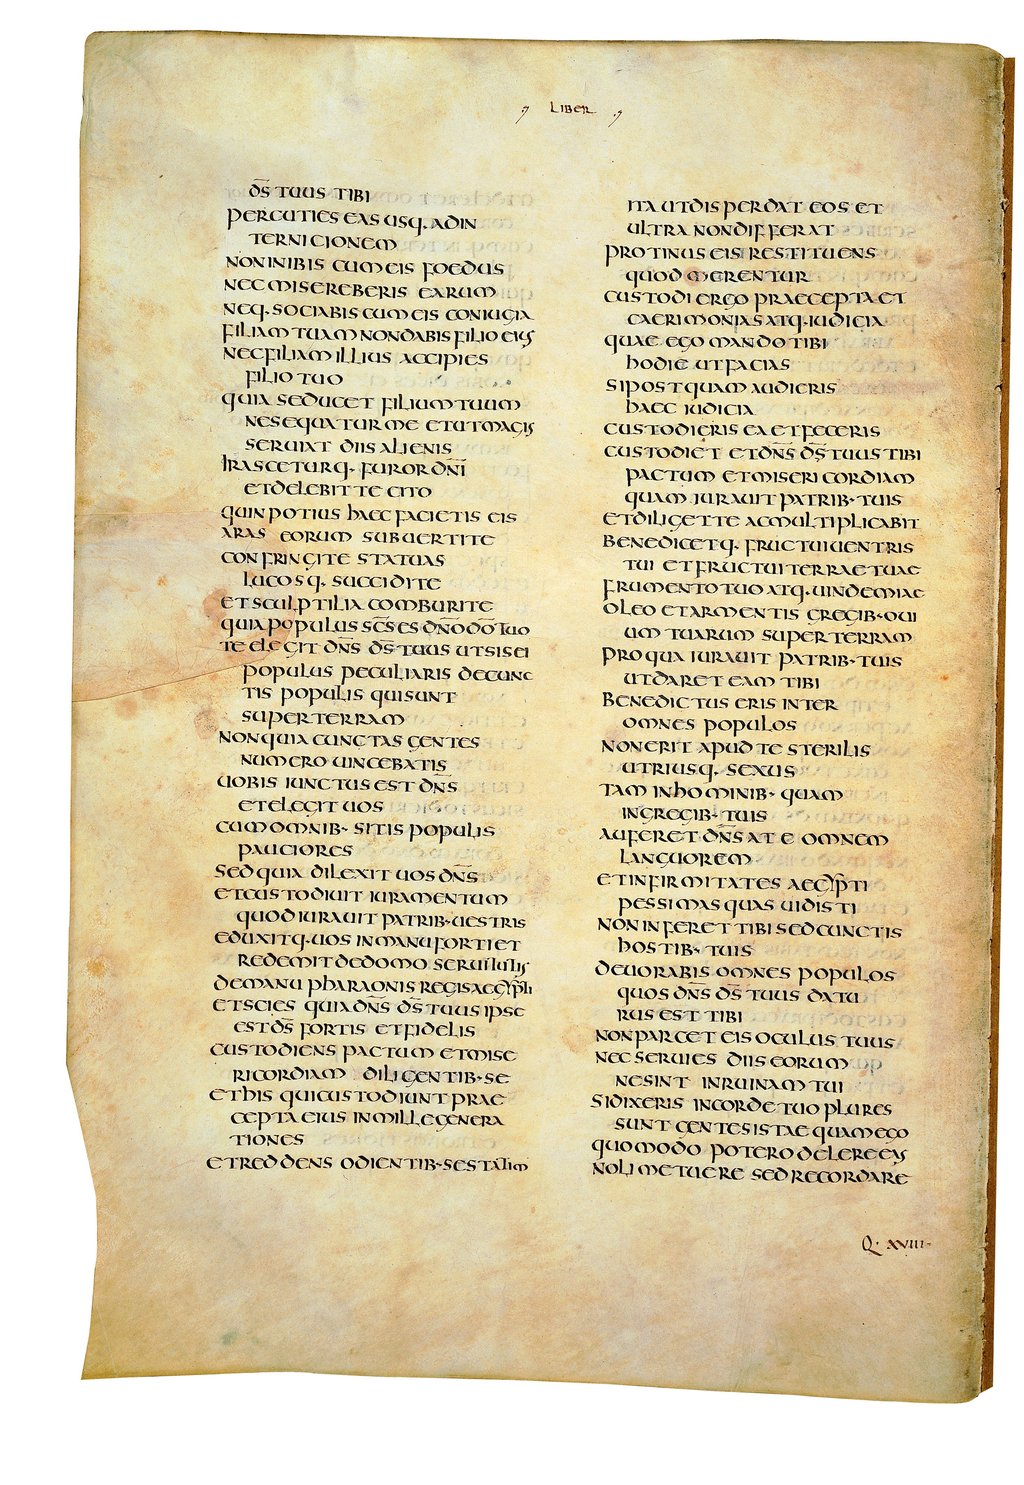 LIBER
D̅S̅ TUUS TIBI
PERCUTIES EAS USQ· ADIN
TERNICIONEM
NON INIBIS CUM EIS FOEDUS
NEC MISEREBERIS EARUM
NEQ· SOCIABIS CUM EIS CONIUGIA
FILIAM TUAM NON DABIS FILIO EIUS
NEC FILIAM ILLIUS ACCIPIES
FILIO TUO
QUIA SEDUCET FILIUM TUUM
NE SEQUATUR ME ET UT MAGIS
SERUIAT DIIS ALIENIS
IRASCETURQ· FUROR D̅N̅I̅
ET DELEBIT TE CITO
QUIN POTIUS HAEC FACIETIS EIS
ARAS EORUM SUBUERTITE
CONFRINGITE STATUAS
LUCOSQ· SUCCIDITE
ET SCULPTILIA COMBURITE
QUIA POPULUS S̅C̅S̅ ES D̅N̅O̅ D̅O̅ TUO
TE ELEGIT D̅N̅S̅ D̅S̅ TUUS UT SIS EI
POPULUS PECULIARIS DE CUNC
TIS POPULIS QUI SUNT
SUPER TERRAM
NON QUIA CUNCTAS GENTES
NUMERO UINCEBATIS
UOBIS IUNCTUS EST D̅N̅S̅
ET ELEGIT UOS
CUM OMNIB· SITIS POPULIS
PAUCIORES
SED QUIA DILEXIT UOS D̅N̅S̅
ET CUSTODIUIT IURAMENTUM
QUOD IURAUIT PATRIB· UESTRIS
EDUXITQ· UOS IN MANU FORTI ET
REDEMIT DE DOMO SERUITUTIS
DE MANU PHARAONIS REGIS AEGYPTI
ET SCIES QUIA D̅N̅S̅ D̅S̅ TUUS IPSE
EST D̅S̅ FORTIS ET FIDELIS
CUSTODIENS PACTUM ET MISE
RICORDIAM DILIGENTIB· SE
ET HIS QUI CUSTODIUNT PRAE
CEPTA EIUS IN MILLE GENERA
TIONES
ET REDDENS ODIENTIB· SE STATIM
ITA UT DISPERDAT EOS ET
ULTRA NON DIFFERAT
PROTINUS EIS RESTITUENS
QUOD MERENTUR
CUSTODI ERGO PRAECEPTA ET
CAERIMONIAS ATQ· IUDICIA
QUAE EGO MANDO TIBI
HODIE UT FACIAS
SI POSTQUAM AUDIERIS
HAEC IUDICIA
CUSTODIERIS EA ET FECERIS
CUSTODIET ET D̅N̅S̅ D̅S̅ TUUS TIBI
PACTUM ET MISERICORDIAM
QUAM IURAUIT PATRIB· TUIS
ET DILIGET TE AC MULTIPLICABIT
BENEDICETQ· FRUCTUI UENTRIS
TUI ET FRUCTUI TERRAE TUAE
FRUMENTO TUO ATQ· UINDEMIAE
OLEO ET ARMENTIS GREGIB· OUI
UM TUARUM SUPER TERRAM
PRO QUA IURAUIT PATRIB· TUIS
UT DARET EAM TIBI
BENEDICTUS ERIS INTER
OMNES POPULOS
NON ERIT APUD TE STERILIS
UTRIUSQ· SEXUS
TAM IN HOMINIB· QUAM
IN GREGIB· TUIS
AUFERET D̅N̅S̅ A TE OMNEM
LANGUOREM
ET INFIRMITATES AEGYPTI
PESSIMAS QUAS UIDISTI
NON INFERET TIBI SED CUNCTIS
HOSTIB· TUIS
DEUORABIS OMNES POPULOS
QUOS D̅N̅S̅ D̅S̅ TUUS DATU
RUS EST TIBI
NON PARCET EIS OCULUS TUUS
NEC SERUIES DIIS EORUM
NE SINT IN RUINAM TUI
SI DIXERIS IN CORDE TUO PLURES
SUNT GENTES ISTAE QUAM EGO
QUOMODO POTERO DELERE EAS
NOLI METUERE SED RECORDARE
Q· XVIII·